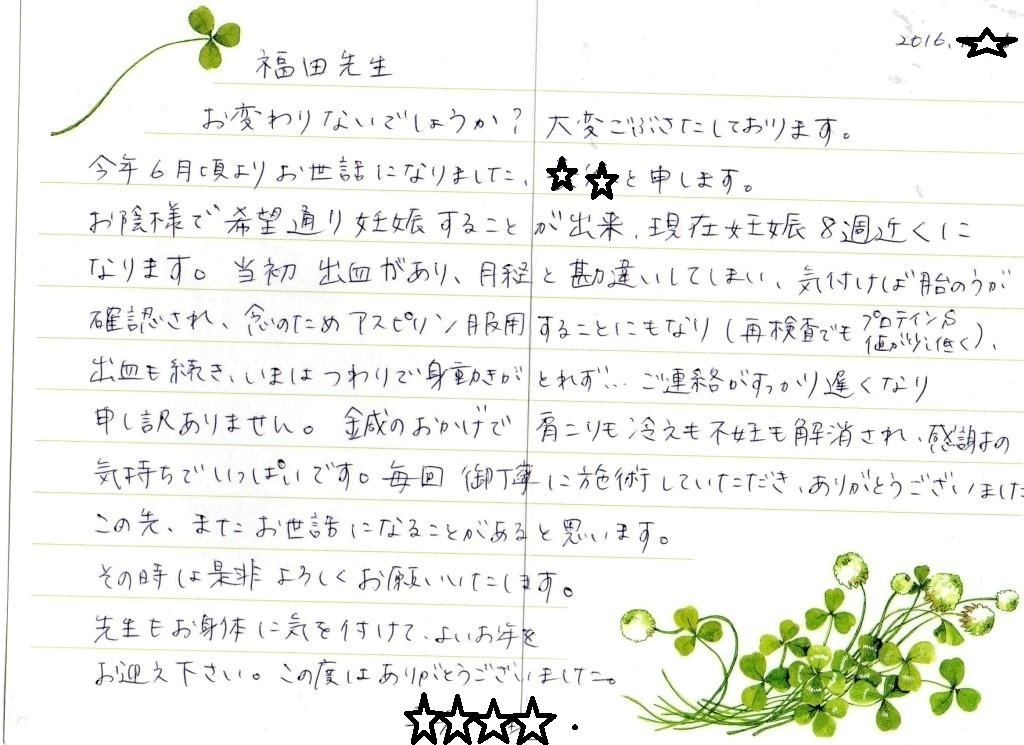 2016.
福田先生
お変わりないでしょうか? 大変ごぶさたしております。
今年6月頃よりお世話になりました、 と申します。
お陰様で希望通り妊娠することが出来、現在妊娠8週近くに
なります。当初 出血があり、月経と勘違いしてしまい、気付けば胎のうが
確認され、念のためアスピリン服用することにもなり(再検査でもプロテインS値が少し低く)、
出血も続き、いまはつわりで身動きがとれず… ご連絡がすっかり遅くなり
申し訳ありません。鍼のおかげで肩こりも冷えも不妊も解消され、感謝の
気持ちでいっぱいです。毎回 御丁寧に施術していただき、ありがとうございました
この先、またお世話になることがあると思います。
その時は是非よろしくお願いいたします。
先生もお身体に気を付けて、よいお年を
お迎え下さい。この度はありがとうございました。